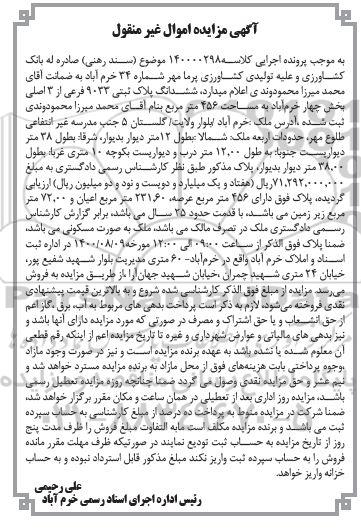 آگهی مزایده اموال غیر منقول
به موجب پرونده اجرایی کلاسه ۱۴۰۰۰۰۲۹۸ موضوع (سند رهنی) صادره له بانک
کشاورزی و علیه تولیدی کشاورزی پرما مهر شماره ۳۴ خرم آباد به ضمانت آقای
محمد میرزا محمودوندی اعلام میدارد، ششدانگ پلاک ثبتی ۹۰۳۳ فرعی از ۳ اصلی
بخش چهار خرم‌آباد به مساحت ۴۵۶ متر مربع بنام آقای محمد میرزا محمودوندی
ثبت شده، آدرس ملک :خرم آباد بلوار ولایت/ گلستان ۵ جنب مدرسه غیر انتفاعی
طلوع مهر، حدودات اربعه ملک: شمالا :بطول ۱۲متر دیوار بدیوار، شرقا: بطول ۳۸ متر
دیواریست جنوبا: به طول ۱۲.۰۰ متر درب و دیواریست بکوچه ۱۰ متری غربا: بطول
۳۸.۰۰ متر دیوار بدیوار، پلاک مذکور طبق نظر کارشناس رسمی دادگستری به مبلغ
۷۱.۲۹۲.۰۰۰.۰۰۰ ریال (هفتاد و یک میلیارد و دویست و نود و دو میلیون ریال) ارزیابی
گردیده، پلاک فوق دارای ۴۵۶ متر مربع عرصه، ۲۳۱.۶۰ متر مربع اعیان و ۷۲.۰۰ متر
مربع زیر زمین می باشد، با قدمت حدود ۲۵ سال می باشد، برابر گزارش کارشناس
رسمی دادگستری ملک در تصرف مالک می باشد، ملک به صورت مسکونی می باشد،
ضمنا پلاک فوق الذکر از ساعت ۰۹:۰۰ الی ۱۲:۰۰ مورخه ۱۴۰۰/۰۸/۰۹ در اداره ثبت
اسناد و املاک خرم آباد واقع در خرم‌آباد- ۶۰ متری مدیریت بلوار شهید شفیع پور،
خیابان ۲۴ متری شهید چمران ،خیابان شهید جهان آرا از طریق مزایده به فروش
می‌رسد. مزایده از مبلغ فوق الذکر کارشناسی شده شروع و به بالاترین قیمت پیشنهادی
نقدی فروخته می‌شود، لازم به ذکر است پرداخت بدهی های مربوط به آب، برق ،گاز اعم
از حق انشعاب و یا حق اشتراک و مصرف در صورتی که مورد مزایده دارای آنها باشد و
نیز بدهی های مالیاتی و عوارض شهرداری و غیره تا تاریخ مزایده اعم از اینکه رقم قطعی
آن معلوم شده یا نشده باشد به عهده برنده مزایده است و نیز در صورت وجود مازاد
،وجوه پرداختی بابت هزینه‌های فوق از محل مازاد به برنده مزایده مسترد خواهد شد و
نیم عشر و حق مزایده نقدی وصول می گردد ضمنا چنانچه روزه مزایده تعطیل رسمی
باشد، مزایده روز اداری بعد از تعطیلی در همان ساعت و مکان مقرر برگزار خواهد شد،
ضمنا شرکت در مزایده منوط به پرداخت ده درصد از مبلغ کارشناسی به حساب سپرده
ثبت می باشد و برنده مزایده مکلف است مابه التفاوت مبلغ فروش را ظرف مدت پنج
روز از تاریخ مزایده به حساب ثبت تودیع نمایند در صورتیکه ظرف مهلت مقرر مانده
فروش را به حساب سپرده ثبت واریز نکند مبلغ مذکور قابل استرداد نبوده و به حساب
خزانه واریز خواهد.
علی رحیمی
رئیس اداره اجرای اسناد رسمی خرم آباد